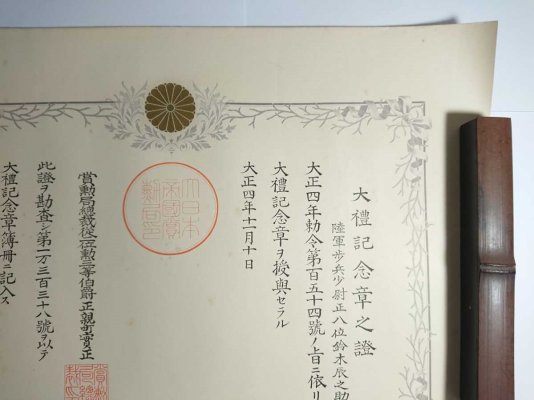 大禮記念章之證
陸軍步兵少尉正八位鈴木辰之助
大正四年勅令第百五十四號ノ旨ニ依リ
大禮記念章ヲ授與セラル
大正四年十一月十日
大日本帝國賞勲局印
賞勲局總裁從二位勲二等伯爵正親町實正
此證ヲ勘査シ第二万三百三十八號ヲ以テ
大禮記念章簿冊ニ記入ス